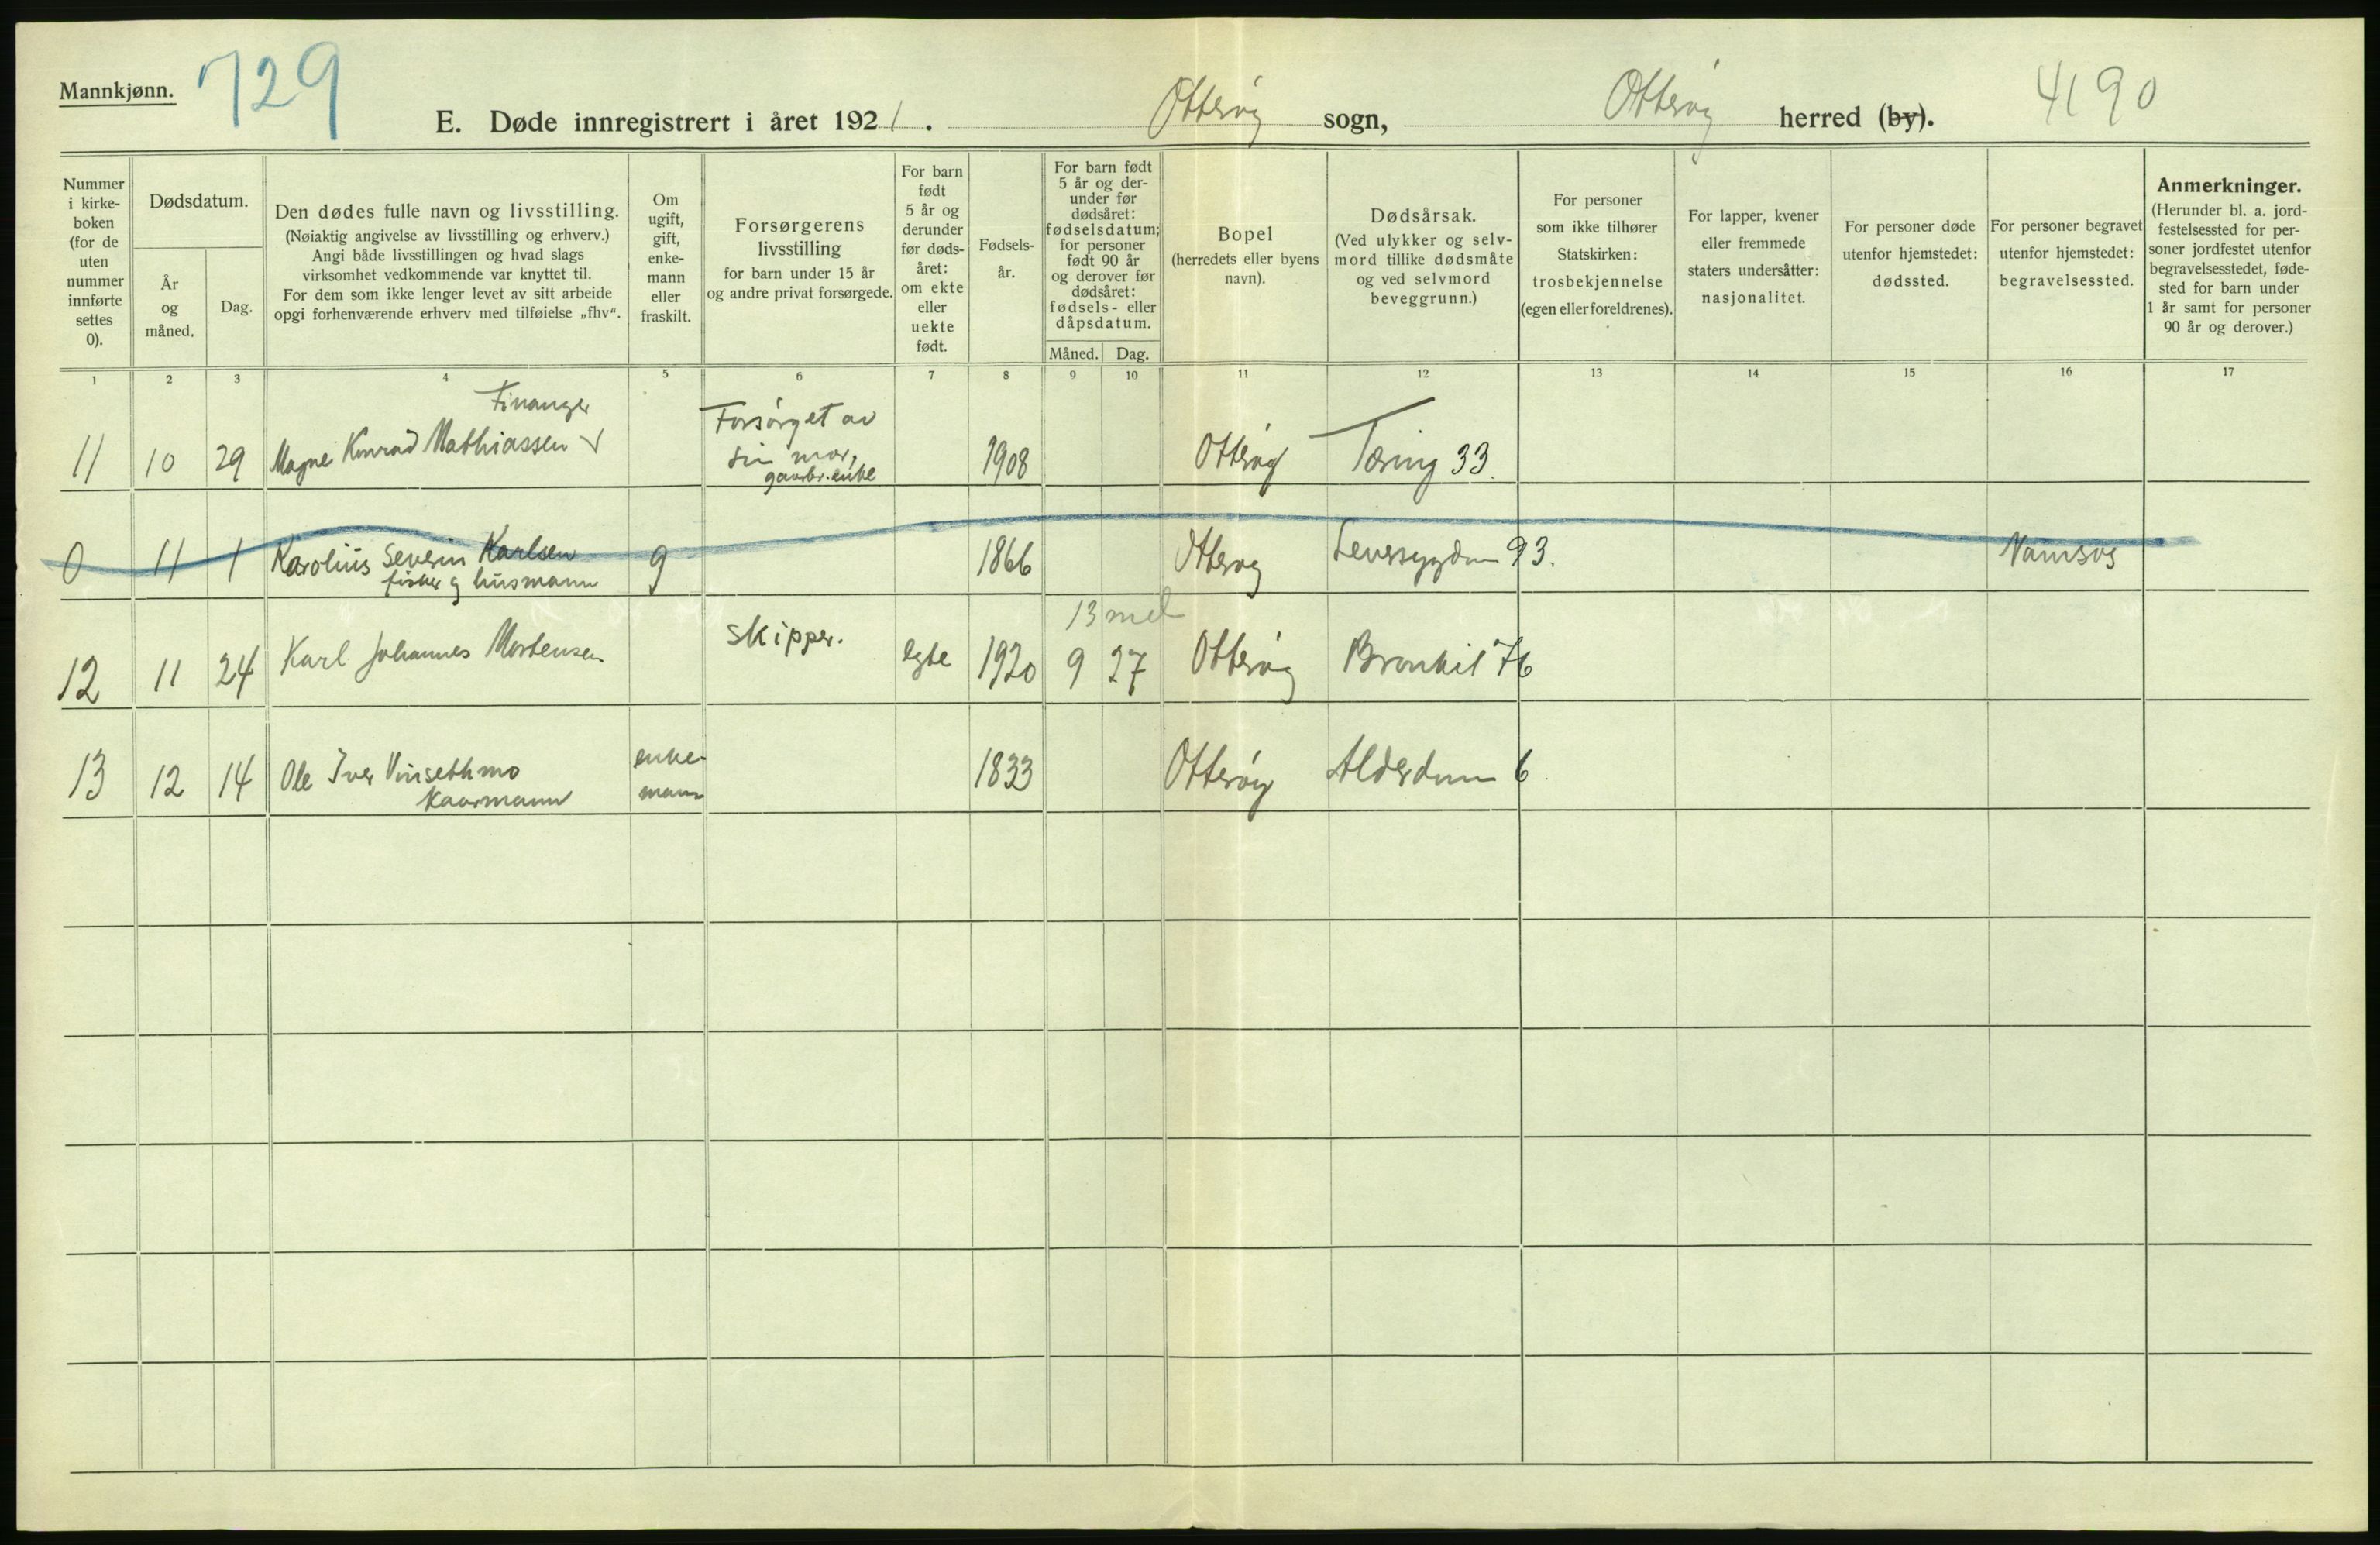 Mannkjønn. 729
E. Døde innregistrert i året 1921. Otterøy sogn, Otterøy herred (by). 4190
Nummer
i kirke-
boken
(for de
uten
nummer
innførte
settes
0).
Dødsdatum.
År
og
måned.
Dag.
Den dødes fulle navn og livsstilling.
(Nøiaktig angivelse av livsstilling og erhverv.)
Angi både livsstillingen og hvad slags
virksomhet vedkommende var knyttet til.
For dem som ikke lenger levet av sitt arbeide
opgi forhenværende erhverv med tilføielse „fhv“.
Om
ugift,
gift,
enke-
mann
eller
fraskilt.
Forsørgerens
livsstilling
for barn under 15 år
og andre privat forsørgede.
For barn
født
5 år og
derunder
før døds-
året:
om ekte
eller
uekte
født.
Fødsels-
år.
For barn født
5 år og der-
under før
dødsåret:
fødselsdatum;
for personer
født 90 år
og derover før
dødsåret:
fødsels- eller
dåpsdatum.
Måned. Dag.
Bopel
(herredets eller byens
navn).
Dødsårsak.
(Ved ulykker og selv-
mord tillike dødsmåte
og ved selvmord
beveggrunn.)
For personer
som ikke tilhører
Statskirken:
trosbekjennelse
(egen eller foreldrenes).
For lapper, kvener
eller fremmede
staters undersåtter:
nasjonalitet.
For personer døde
utenfor hjemstedet:
dødssted.
For personer begravet
utenfor hjemstedet:
begravelsessted.
Anmerkninger.
(Herunder bl. a. jord-
festelsessted for per-
soner jordfestet utenfor
begravelsesstedet, føde-
sted for barn under
1 år samt for personer
90 år og derover.)
1 2 3 4 5 6 7 8 9 10 11 12 13 14 15 16 17
Finanger
Forsørget av
11 10 29 Magne Konrad Mathiassen √ sin mor, 1908 Otterøy Tæring 33.
gaarbr. enke
0 11 1 Karolius Severin Karlsen g 1866 Otterøy Leversygdom 93. Namsos
fisker og husmann
13 md
12 11 24 Karl Johannes Mortensen skipper. egte 1920 9 27 Otterøy Bronkit 76
13 12 14 Ole Iver Vinsethmo enke- 1833 Otterøy Alderdom 6.
Kaarmann mann